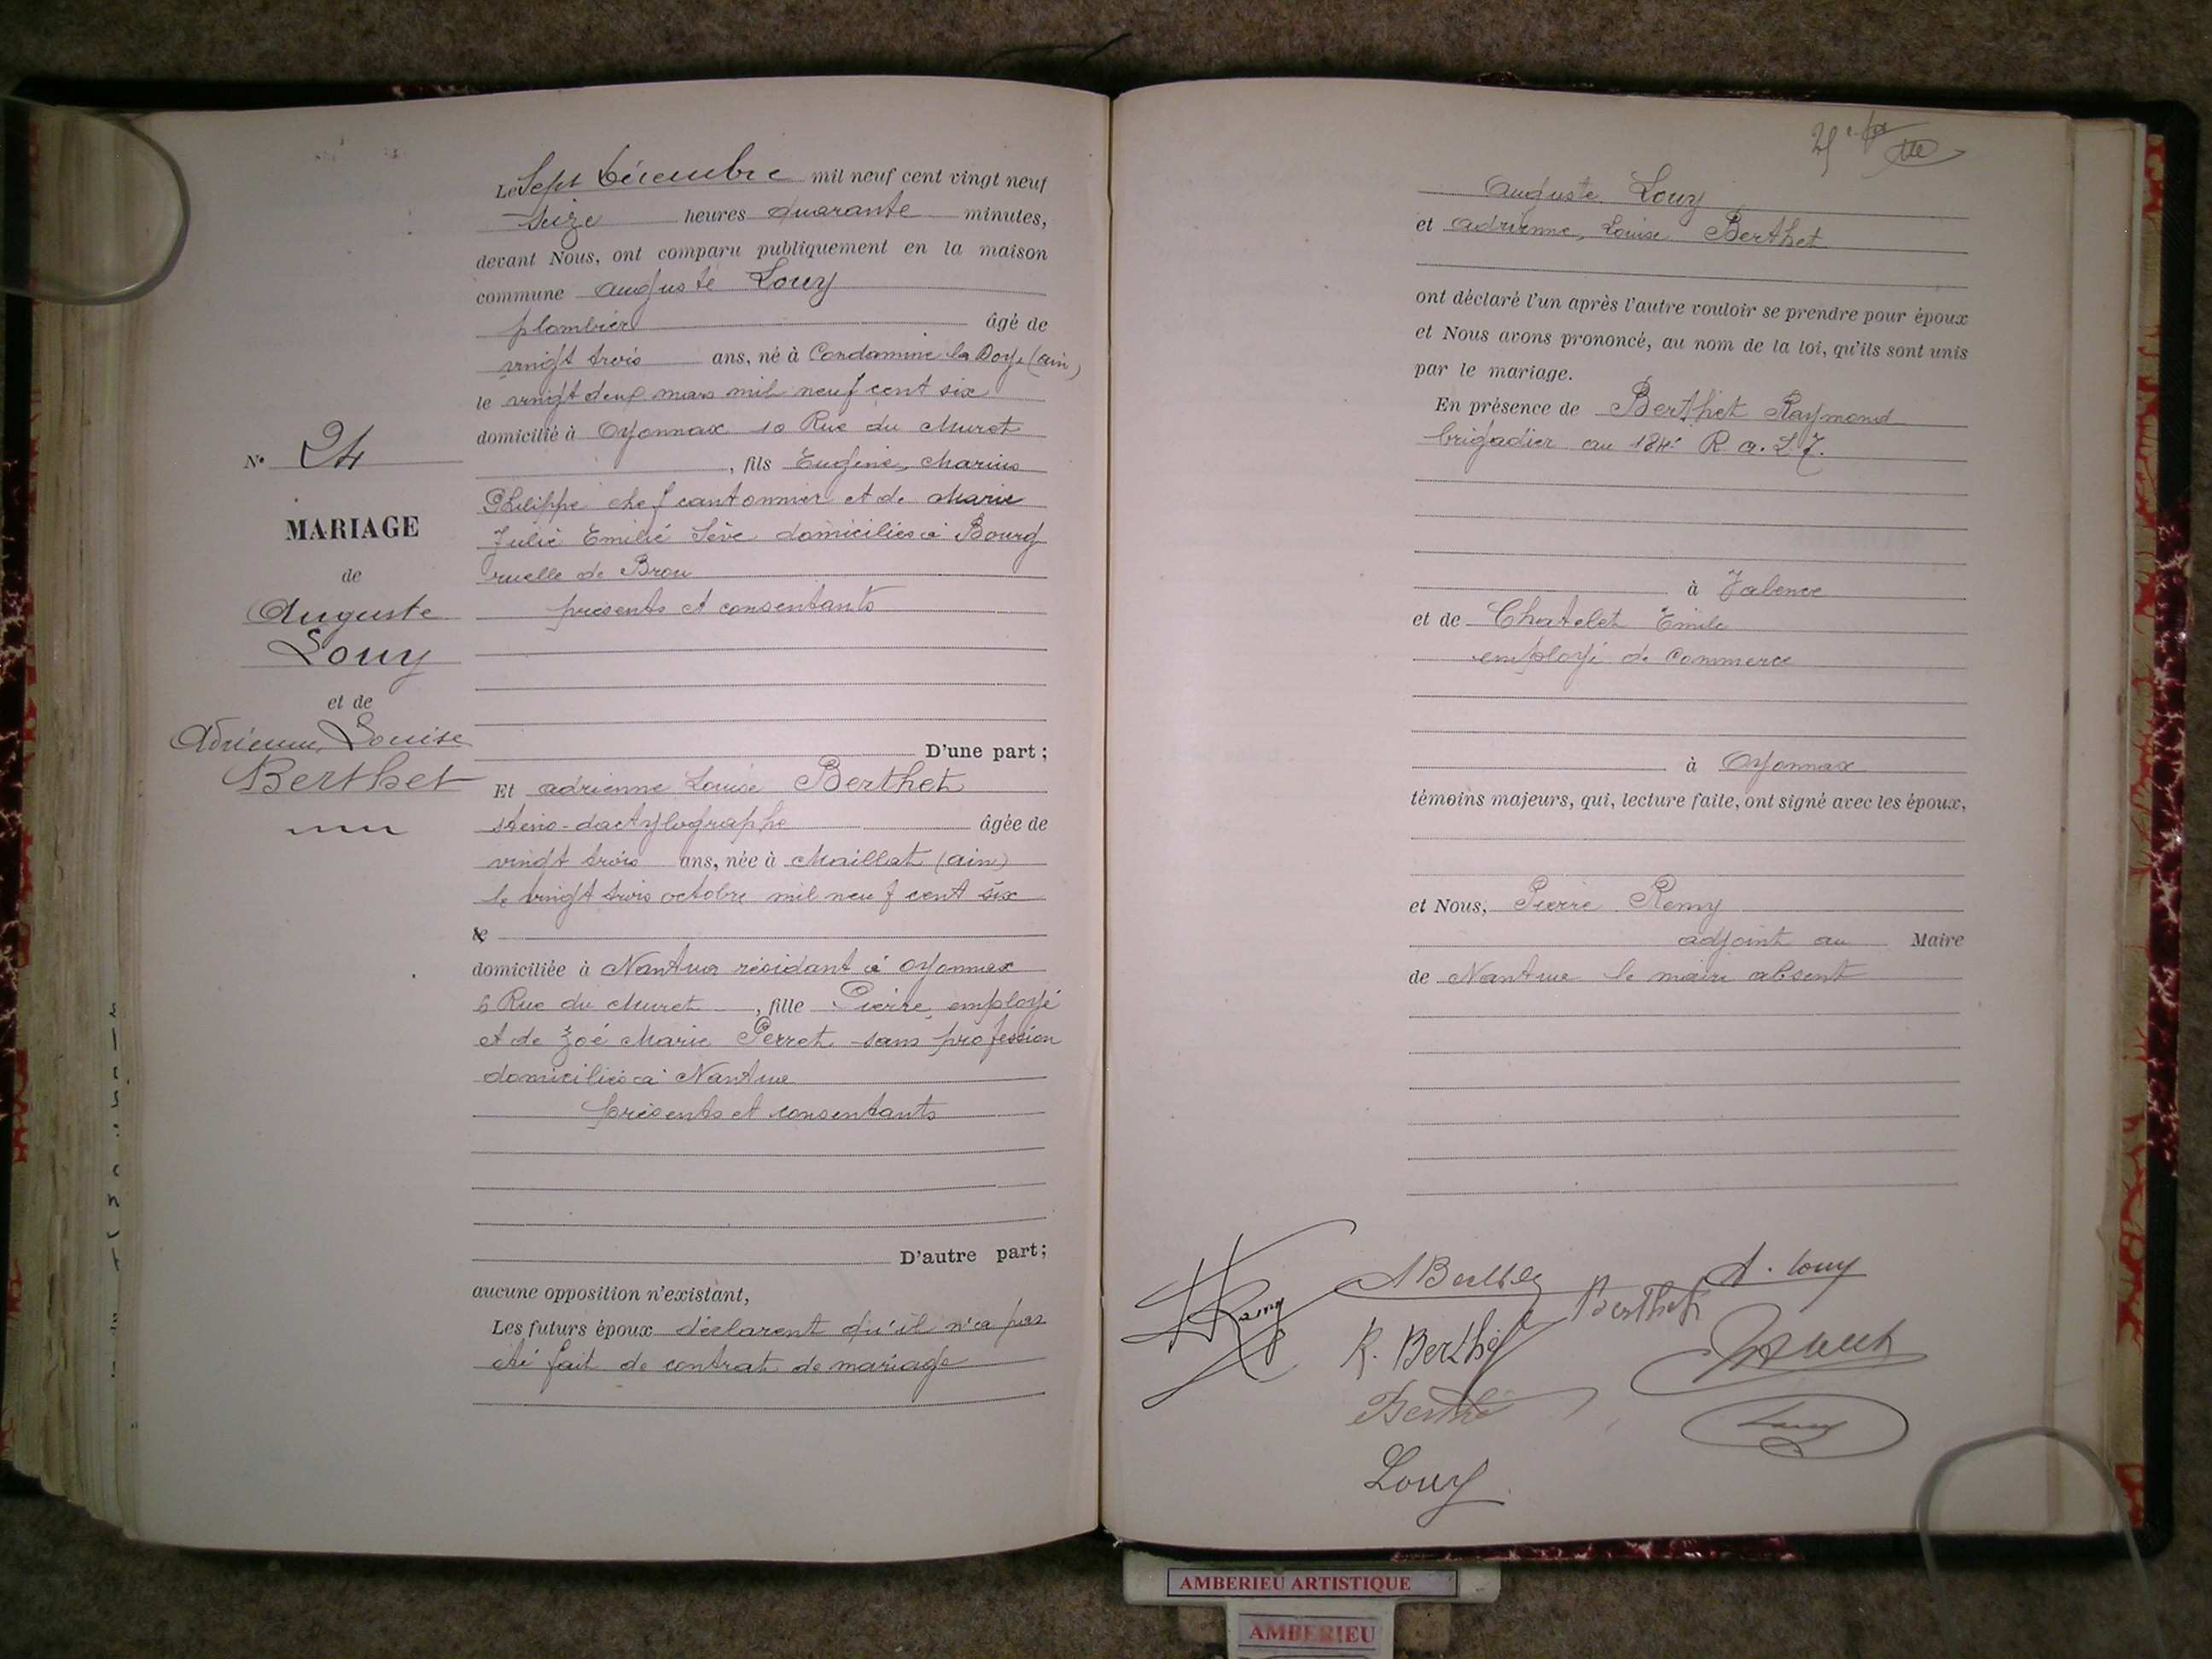 Le Sept Décembre mil neuf cent vingt neuf
Seize heures quarante minutes,
devant Nous, ont comparu publiquement en la maison
commune Auguste Louy
plombier âgé de
vingt trois ans, né à Condamine la Doye (ain)
le vingt deux mars mil neuf cent six
domicilié à Oyonnax 10 Rue du Muret
, fils Eugène, Marius
Philippe chef cantonnier et de Marie
Julie Emilie Sève domiciliés à Bourg
ruelle de Brou
présents et consentants
D'une part ;
N° 24
MARIAGE
de
Auguste
Louy
et de
Adrienne, Louise
Berthet
Et adrienne Louise Berthet
sténo-dactylographe âgée de
vingt trois ans, née à Maillat (ain)
le vingt trois octobre mil neuf cent six
le
domiciliée à Nantua résidant à Oyonnax
6 Rue du Muret, fille Pierre employé
et de Zoé Marie Perret sans profession
domiciliés à Nantua
présents et consentants
D'autre part ;
aucune opposition n'existant,
Les futurs époux déclarent qu'il n'a pas
été fait de contrat de mariage
Auguste Louy
et adrienne, Louise Berthet
ont déclaré l'un après l'autre vouloir se prendre pour époux
et Nous avons prononcé, au nom de la loi, qu'ils sont unis
par le mariage.
En présence de Berthet Raymond
brigadier au 184e R. a. L. T.
à Valence
et de Chatelet Emile
employé de Commerce
à Oyonnax
témoins majeurs, qui, lecture faite, ont signé avec les époux,
et Nous, Pierre Remy
adjoint au Maire
de Nantua le maire absent
A Berthet
A. Louy
Berthet
R. Berthet
Louy
Louy
AMBERIEU ARTISTIQUE
AMBERIEU